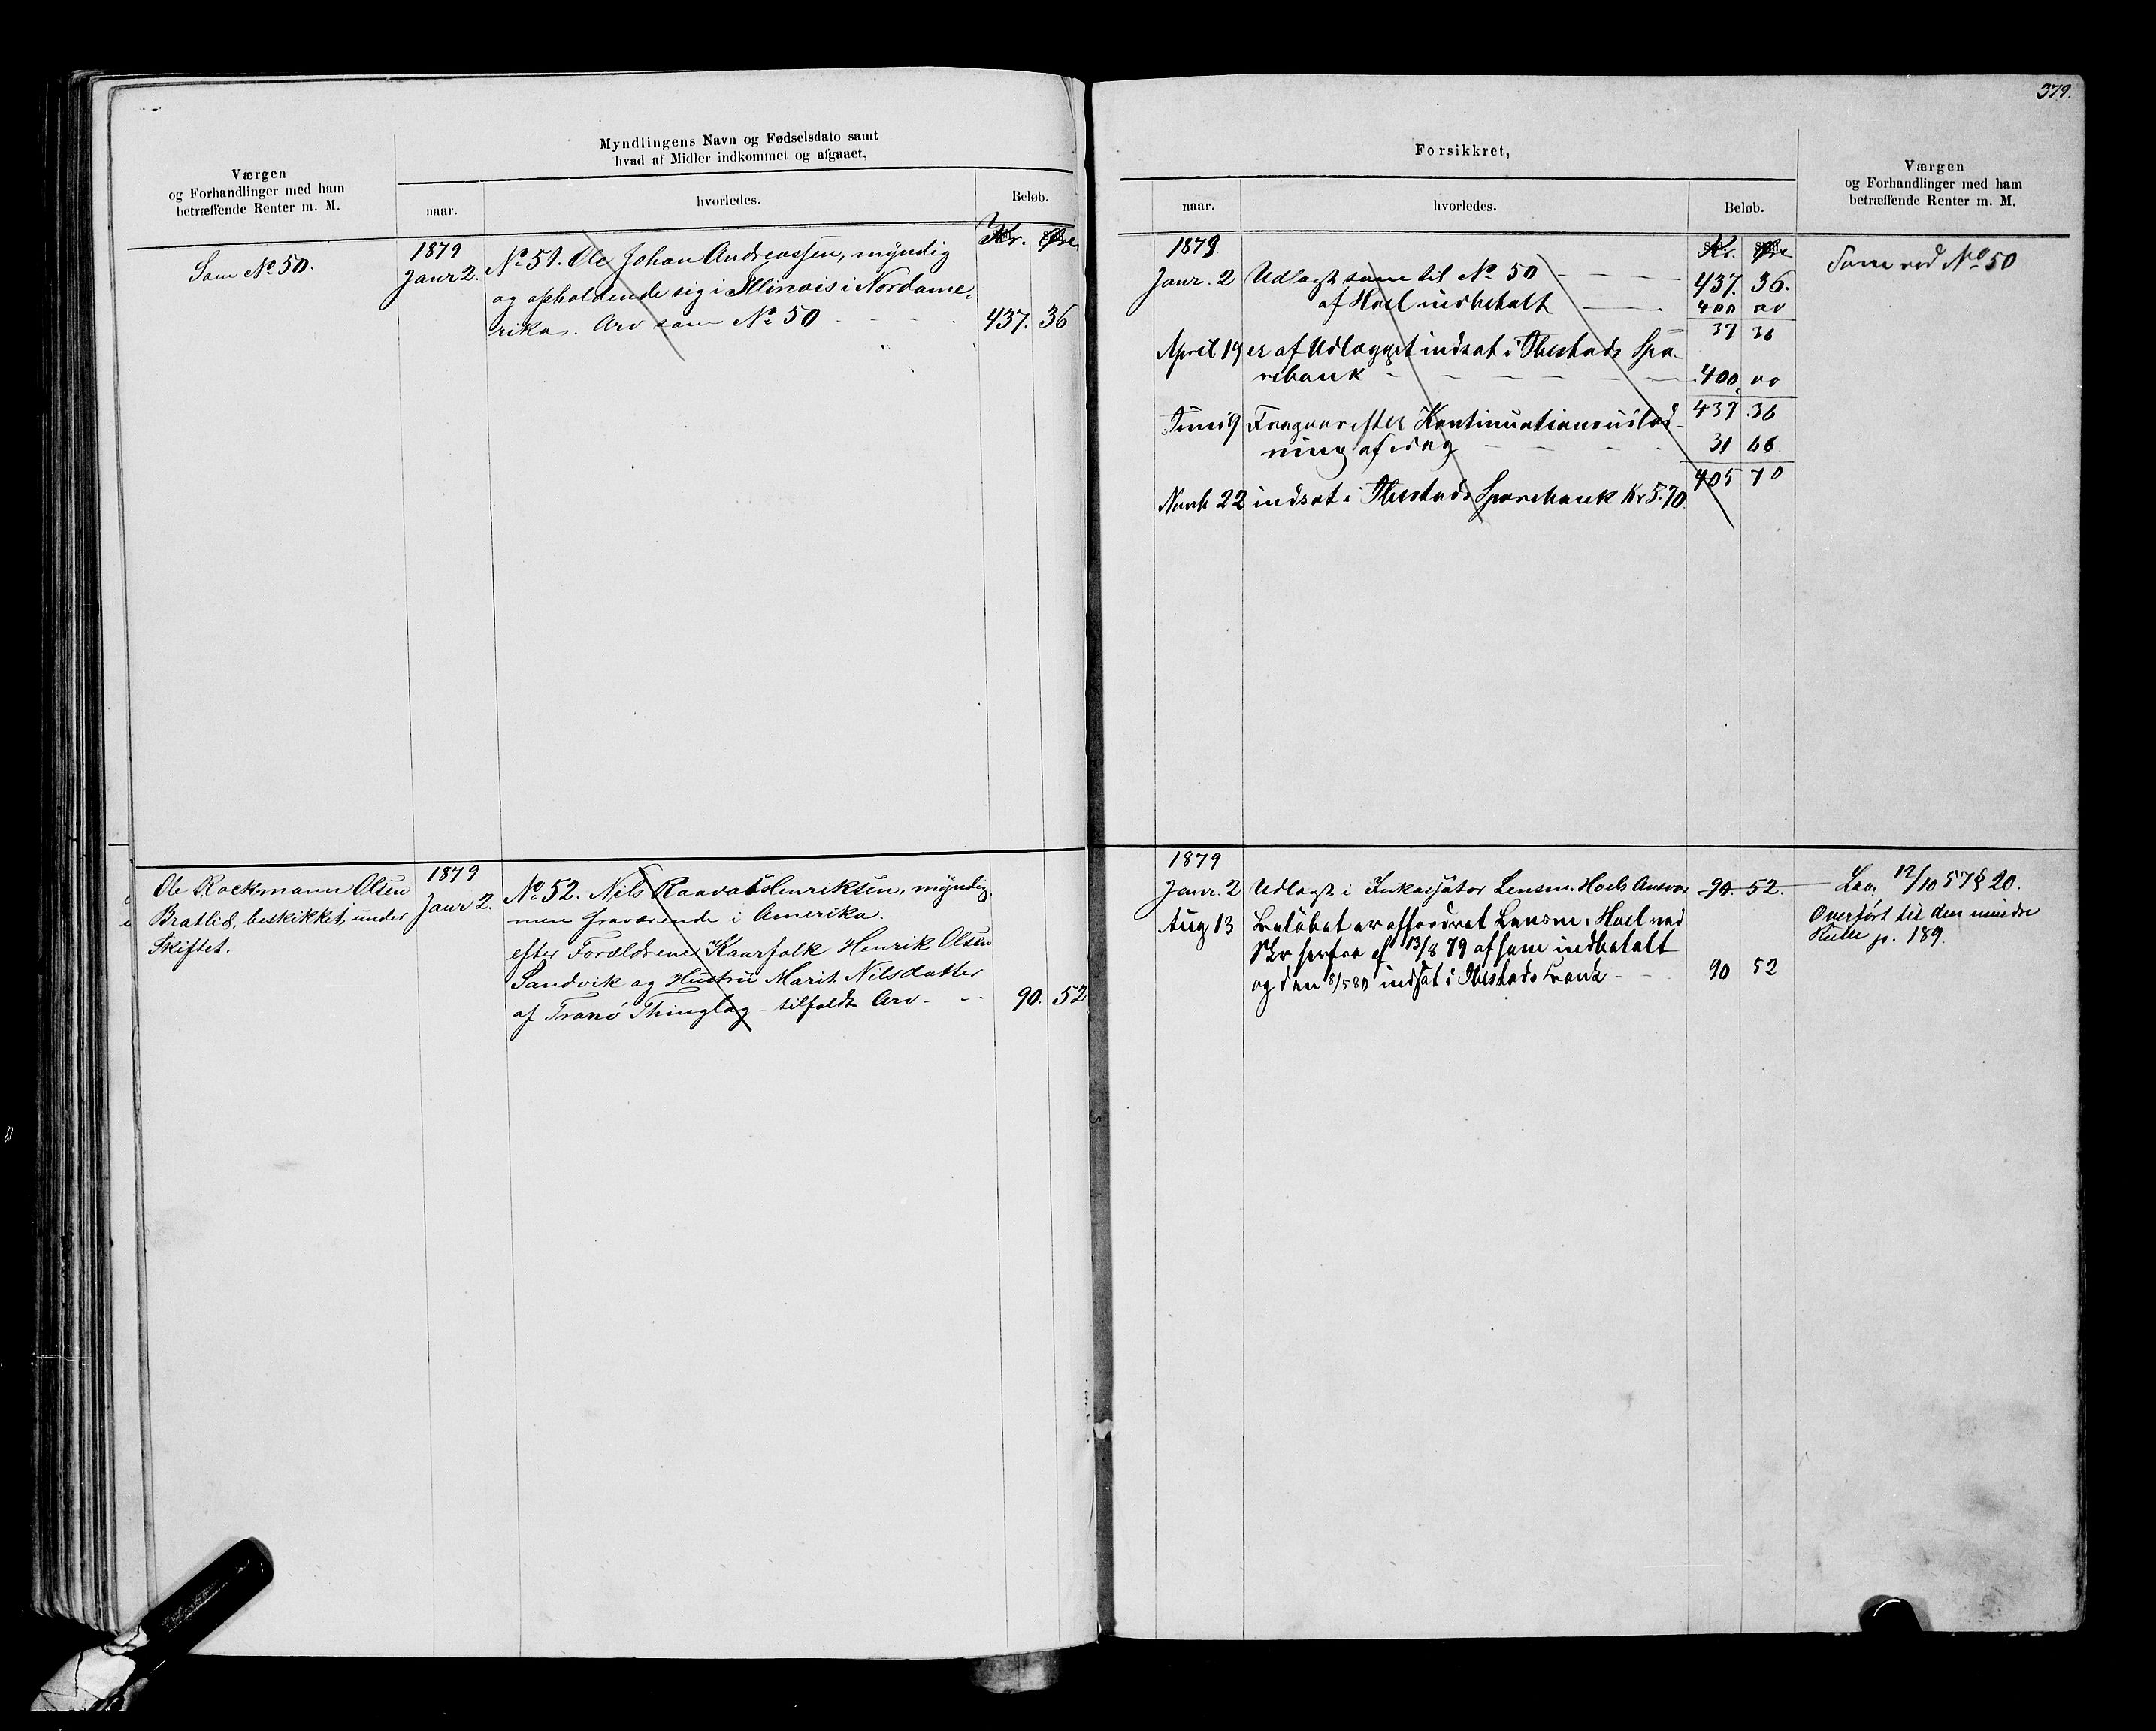 379.
Værgen
og Forhandlinger med ham
betræffende Renter m. M.
Myndlingens Navn og Fødselsdato samt
hvad af Midler indkommet og afgaaet,
naar.
hvorledes.
Beløb.
Kr. Øre
Som No 50.
1879
Janr 2.
No 51. Ole Johan Andreassen, myndig
og opholdende sig i Illinois i Nordame-
rika. Arv som No 50 - - - 437. 36
Ole Rockmann Olsen
Bratlid, beskikket under
Skiftet.
1879
Janr 2.
No 52. Nils Henriksen, myndig
men fraværende i Amerika.
efter Forældrene Kaarfolk Henrik Olsen
Sandvik og Hustru Marit Nilsdatter
af Tranö Thinglag - tilfaldt Arv - - 90. 52
Forsikkret,
naar.
hvorledes.
Beløb.
Værgen
og Forhandlinger med ham
betræffende Renter m. M.
Kr. Øre
1879
Janr. 2 Udlagt som til No 50 - - - 437. 36.
af Hoel indbetalt 400 00
37 36
April 19 er af Udlægget indsat i Ibestads Spa-
rebank - - - - - 400. 00
437. 36
Juni 9 Fragaar efter Kontinuationsudlod-
ning af idag - - - 31 66
405 70
Novb 22 indsat i Ibestads Sparebank Kr 5.70
Som ved No 50
1879
Janr. 2 Udlagt i Inkassator Lensm. Hoels Ansvar 90. 52.
Aug 13 Beløbet er affordret Lensm. Hoel ved
Skr herfra af 13/8 79 af ham indbetalt
og den 8/5 80 indsat i Ibestads Bank - - 90 52
Lov 12/10 57 § 20.
Overført til den mindre
p. 189.